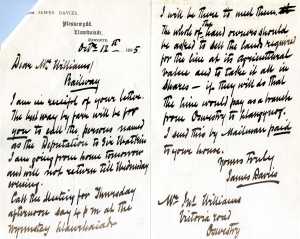 JAMES DAVIES,
Llanrhaiadr,
Oswestry.
Octr 12th 1885
Dear Mr Williams,
Railway
I am in receipt of your letter.
The best way by far will be for
you to edit the persons named
as the Deputation to Sir Watkin
I am going from home tomorrow
and will not return till Wednesday
evening.
Call the Meeting for Thursday
afternoon say 4 pm at the
Wynnstay Llanrhaiadr
I will be there to meet them
the whole of the land owners should
be asked to sell the land required
for the line at its agricultural
value and to take it all in
shares - if they will do that
the line would pay as a branch
from Oswestry to Llangynog.
I send this by Mailman paid
to your house.
Yours Truly
James Davies
Mr Jno Williams
Victoria road
Oswestry